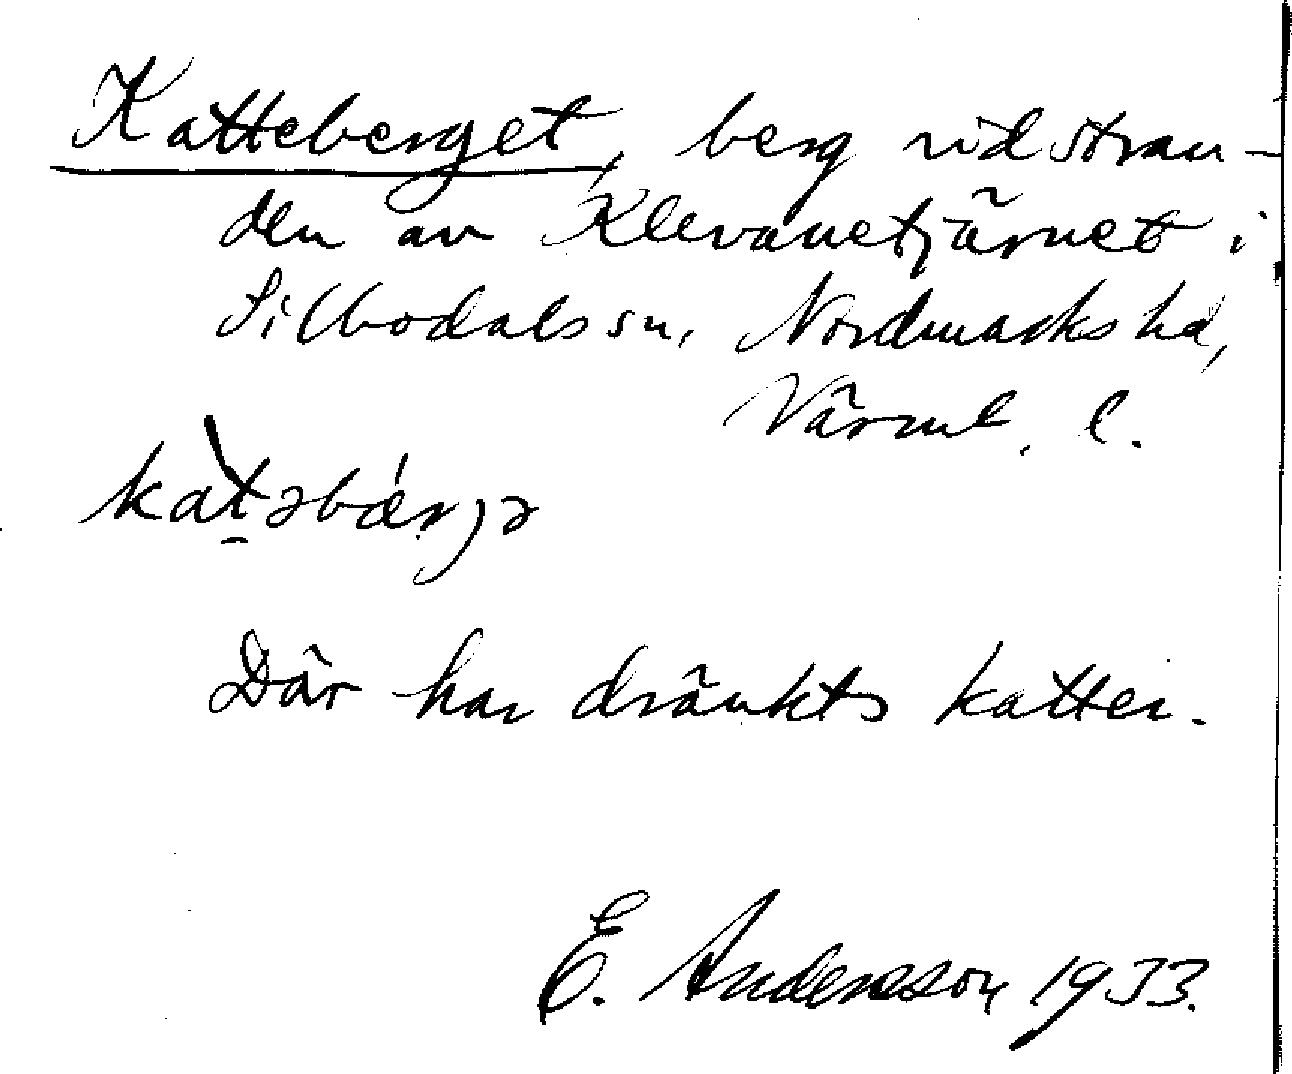 Katteberget, berg vid stran-
den av Klevanetjärnet i
Silbodals sn, Nordmarks hd,
Värml. l.
katəbærjə
Där har dränkts katter.
E. Andersson 1933.